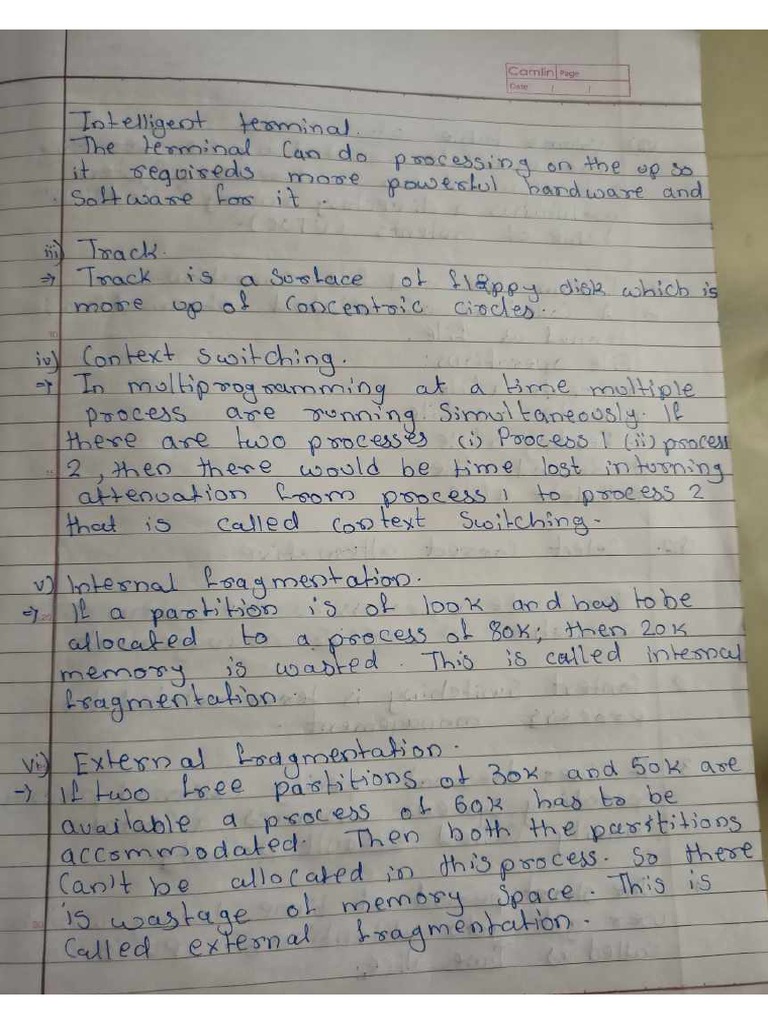 Camlin Page
Date / /
Intelligent terminal.
The terminal can do processing on the up so
it requireds more powerful hardware and
Software for it.
iii) Track.
⇒ Track is a Surface of floppy disk which is
more up of concentric circles.
iv) Context switching.
⇒ In multiprogramming at a time multiple
process are running Simultaneously. If
there are two processes (i) Process 1 (ii) process
2, then there would be time lost in turning
attenuation from process 1 to process 2
that is called context Switching.
v) Internal fragmentation.
⇒ If a partition is of 100K and has to be
allocated to a process of 80K; then 20K
memory is wasted. This is called internal
fragmentation.
vi) External fragmentation.
→ If two free partitions of 30K and 50K are
available a process of 60K has to be
accommodated. Then both the parstitions
can't be allocated in this process. So there
is wastage of memory space. This is
called external fragmentation.